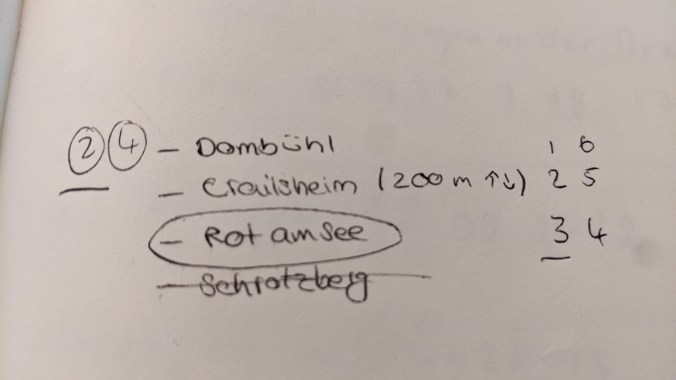 2 4 – Dombühl 1 6
– Crailsheim (200 m ↑↓) 2 5
– Rot am See 3 4
– Schrotzberg